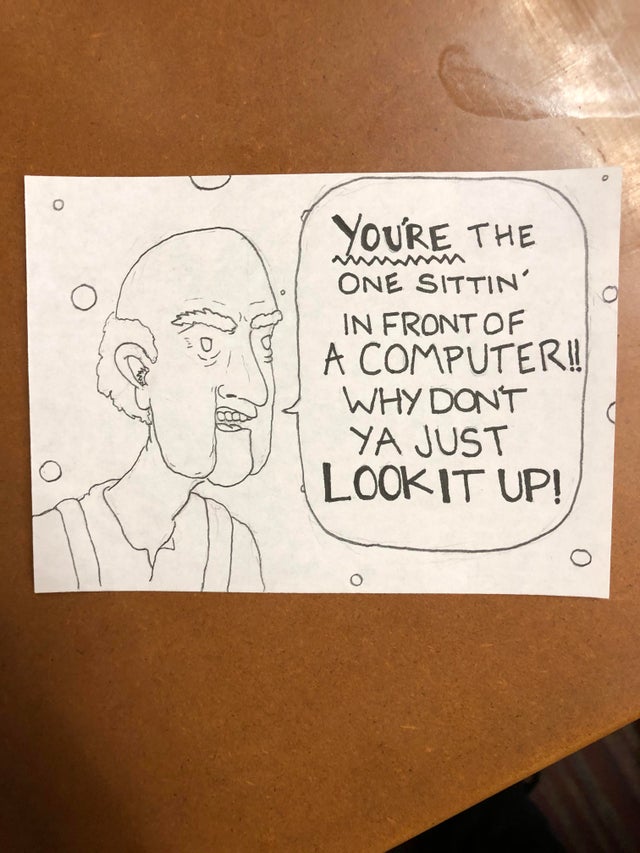 YOU'RE THE
ONE SITTIN'
IN FRONT OF
A COMPUTER!!
WHY DON'T
YA JUST
LOOK IT UP!